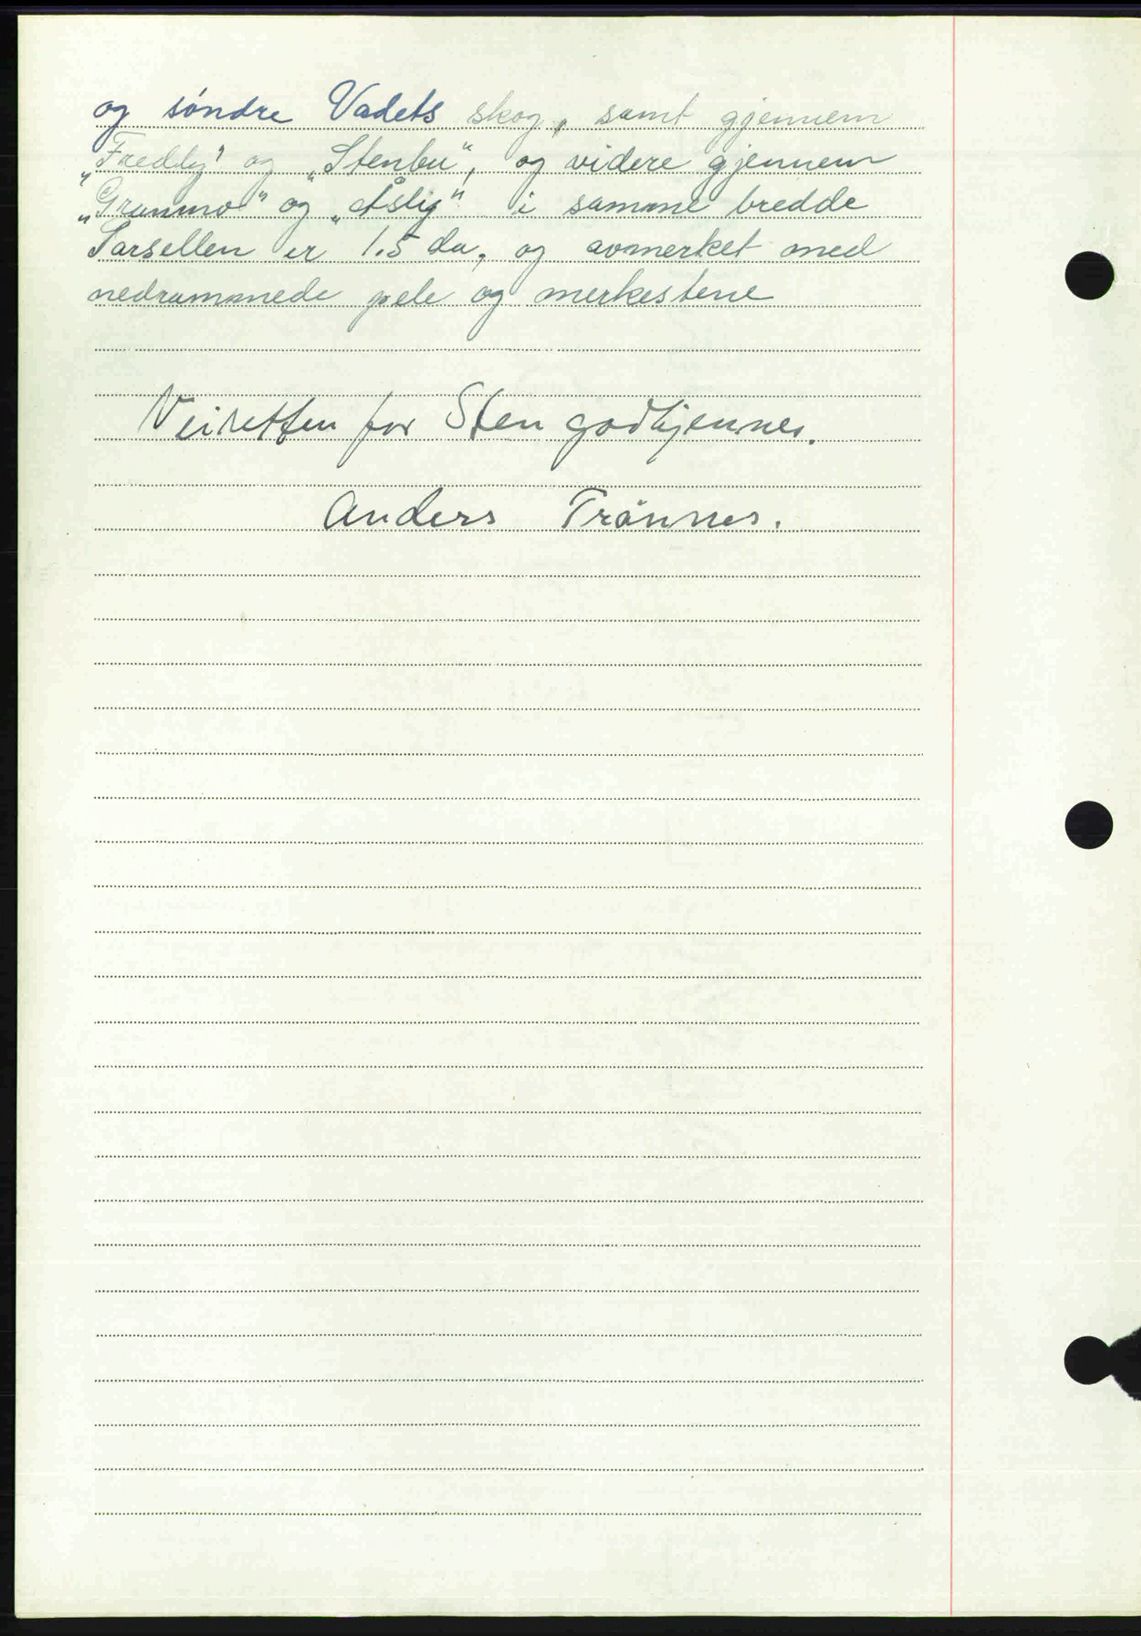 og søndre Vadets skog, samt gjennem
„Fredly" og „Stenbu", og videre gjennem
„Granmo" og „Åslig" i samme bredde
Parsellen er 1.5 da, og avmerket med
nedrammede pele og merkestene
Veiretten for Sten godkjennes.
Anders Trønnes.